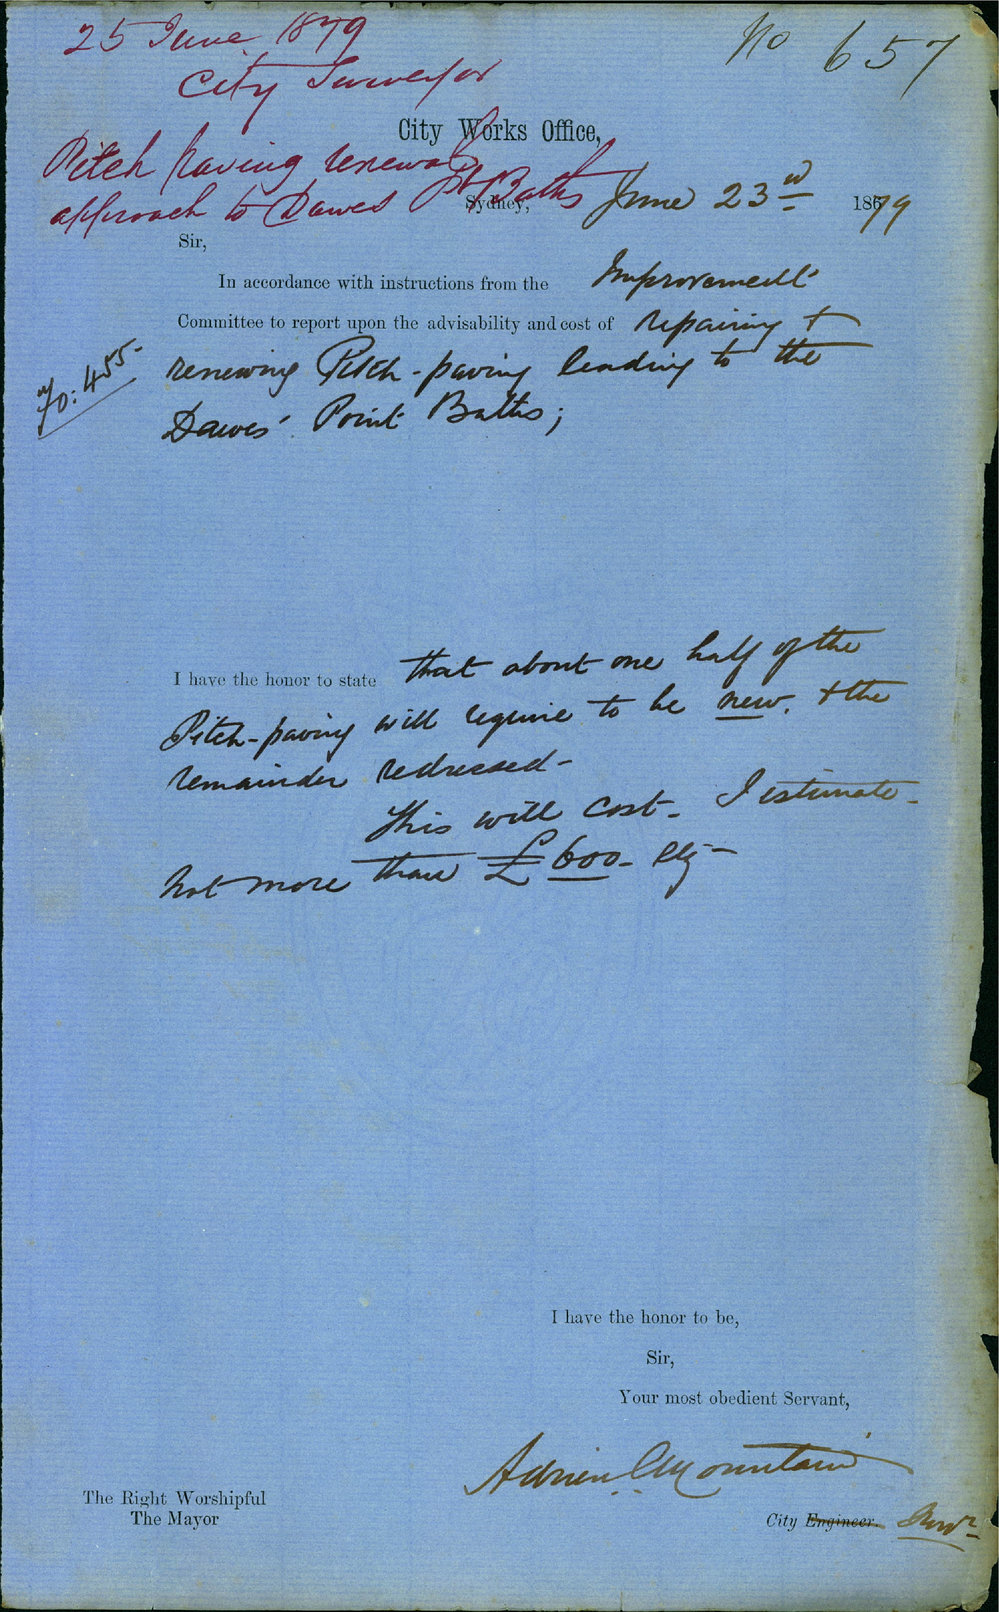 25 June 1879
No 657
City Surveyor
City Works Office,
Pitch paving renewal
approach to Dawes Pt Baths
Sydney, June 23rd 1879
Sir,
In accordance with instructions from the Improvement
Committee to report upon the advisability and cost of repairing &
renewing Pitch-paving leading to the
Dawes' Point Baths;
I have the honor to state that about one half of the
Pitch-paving will require to be new. & the
remainder redressed-
This will cost- I estimate-
not more than £600-
I have the honor to be,
Sir,
Your most obedient Servant,
Adrien C Mountain
The Right Worshipful
The Mayor
City Engineer. Survr